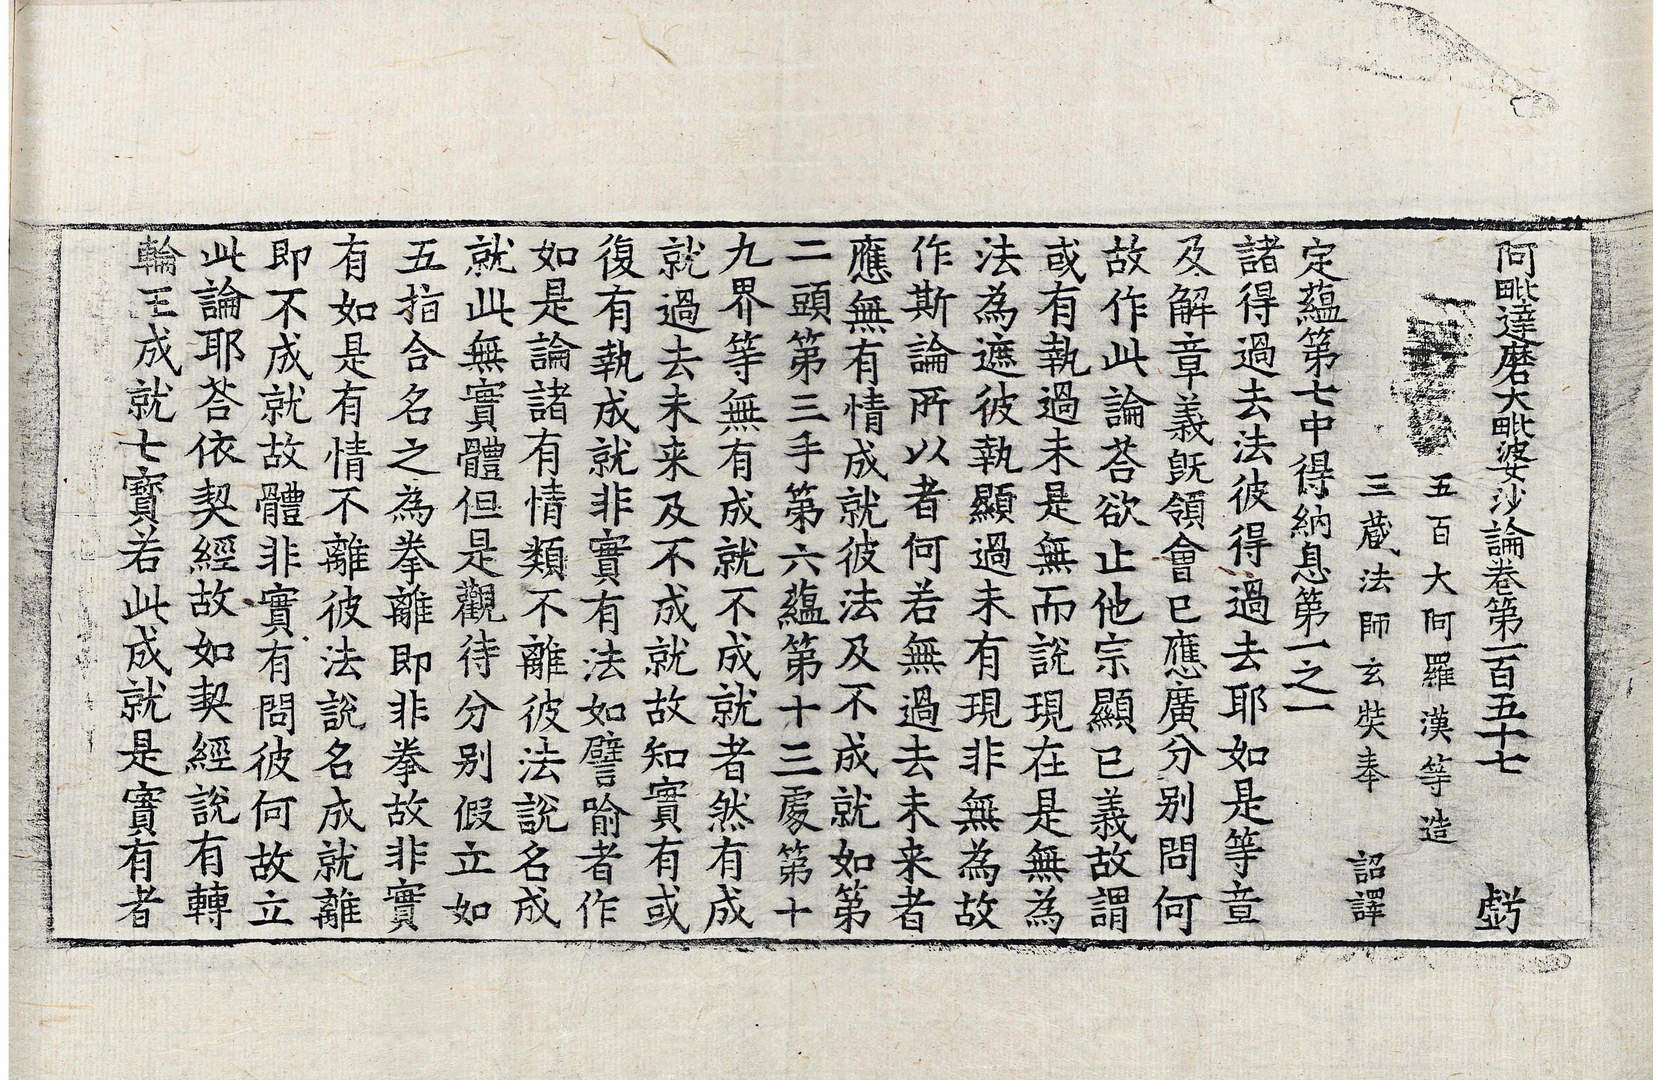 阿毗達磨大毗婆沙論卷第一百五十七 虧
五百大阿羅漢等造
三蔵法師玄奘奉 詔譯
定蘊第七中得納息第一之一
諸得過去法彼得過去耶如是等章
及解章義旣領會已應廣分别問何
故作此論荅欲止他宗顯已義故謂
或有執過未是無而說現在是無為
法為遮彼執顯過未有現非無為故
作斯論所以者何若無過去未来者
應無有情成就彼法及不成就如第
二頭第三手第六蘊第十三處第十
九界等無有成就不成就者然有成
就過去未来及不成就故知實有或
復有執成就非實有法如譬喻者作
如是論諸有情類不離彼法說名成
就此無實體但是觀待分别假立如
五指合名之為拳離即非拳故非實
有如是有情不離彼法說名成就離
即不成就故體非實有問彼何故立
此論耶荅依契經故如契經說有轉
輪王成就七寶若此成就是實有者